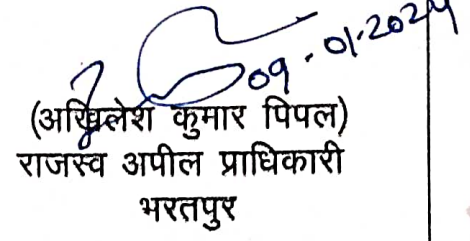 09-01-2024
(अखिलेश कुमार पिपल)
राजस्व अपील प्राधिकारी
भरतपुर